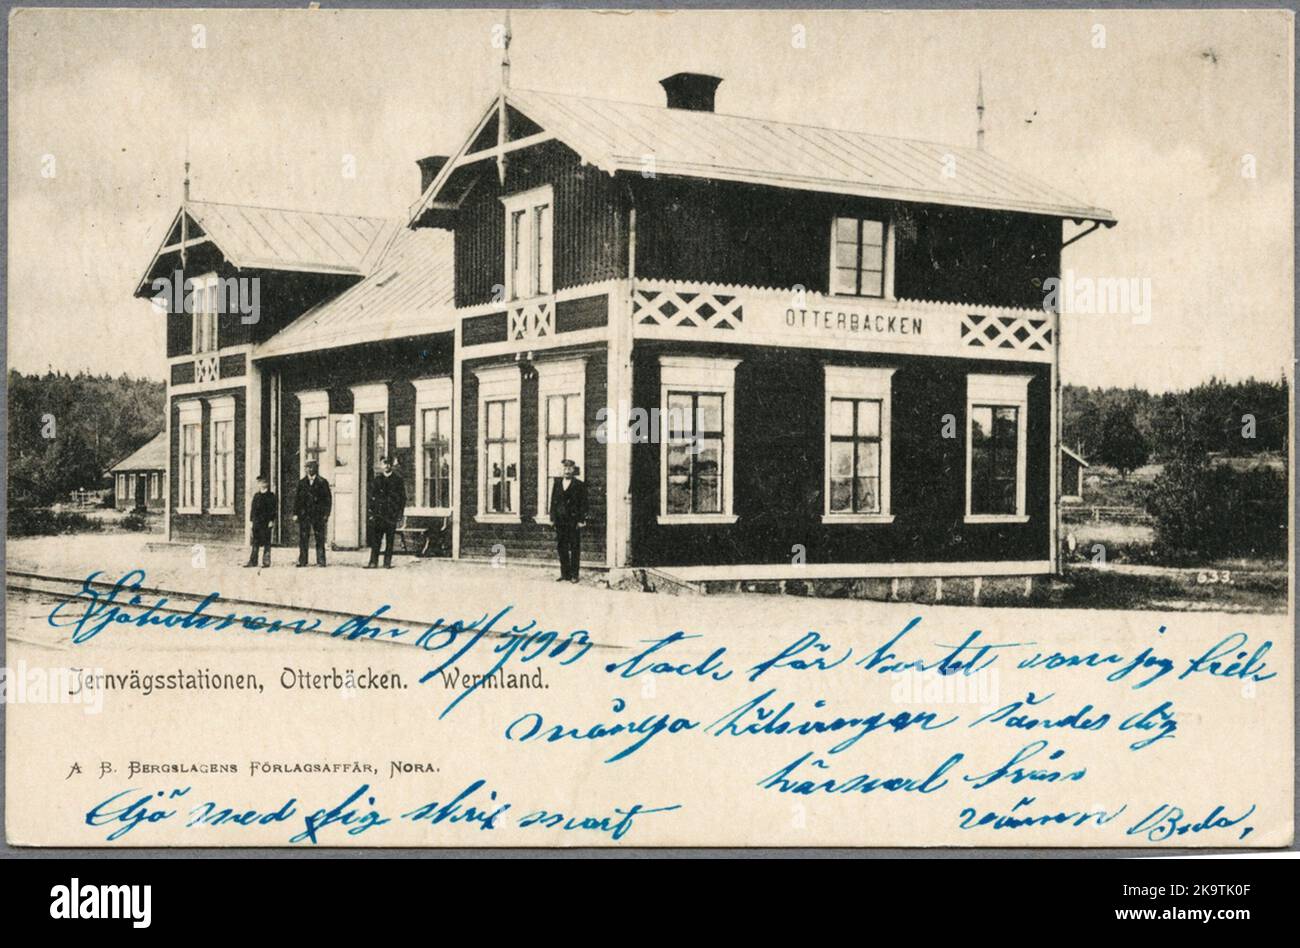 OTTERBACKEN
633.
den 18/5 1903
tack för kortet som jag fick
Jernvägsstationen, Otterbäcken. Wermland.
många hälsningar sändes dig
A. B. BERGSLAGENS FÖRLAGSAFFÄR, NORA.
härmed från
Ajö med dig skrif snart
vännen Beda,
alamy
Image ID: 2K9TK0F
www.alamy.com